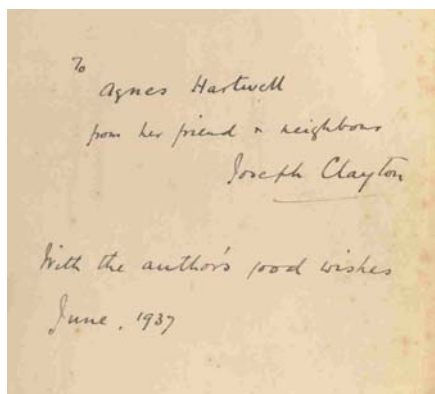 To
Agnes Hartwell
from her friend & neighbour
Joseph Clayton
With the author's good wishes
June, 1937